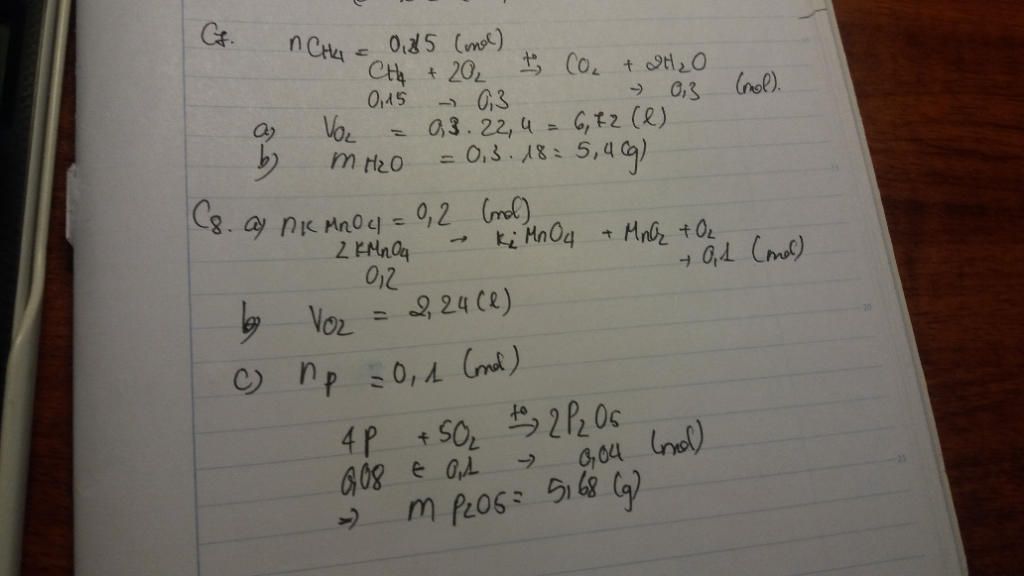 C7. nCH4 = 0,15 (mol)
CH4 + 2O2 t°→ CO2 + 2H2O
0,15 → 0,3 → 0,3 (mol).
a) VO2 = 0,3 . 22,4 = 6,72 (l)
b) mH2O = 0,3 . 18 = 5,4 (g)
C8. a) nKMnO4 = 0,2 (mol)
2KMnO4 → K2MnO4 + MnO2 + O2
0,2 → 0,1 (mol)
b) VO2 = 2,24 (l)
c) nP = 0,1 (mol)
4P + 5O2 t°→ 2P2O5
0,08 ← 0,1 → 0,04 (mol)
=> mP2O5 = 5,68 (g)